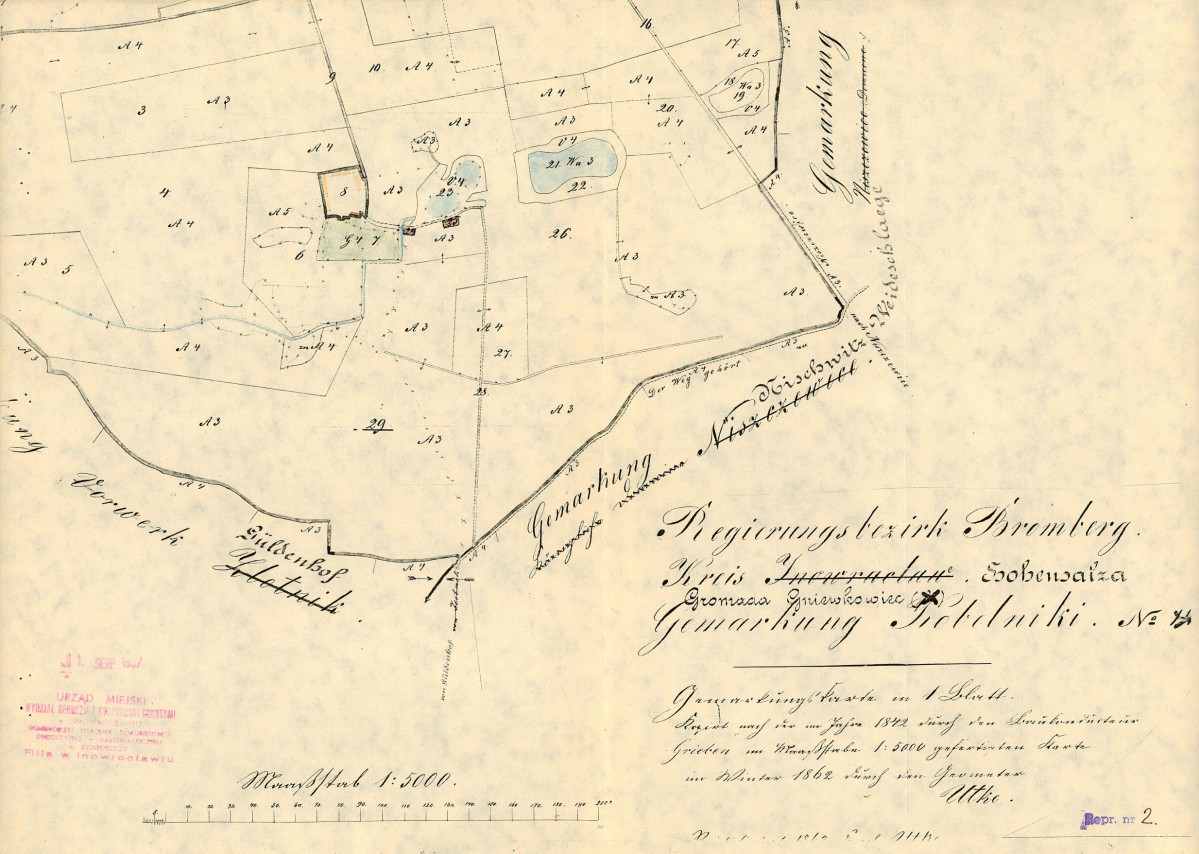 A 4
9
10.
A 4
16.
17.
A 5
A 5.
18
Wa 3
19
V 4
A 4
Gemarkung
3
A 3
A 4
A 4
20.
A 4
A 3
A 3
V 4
21. Wa 3
22.
A 4
4
A 4
8
A 3
V 4.
23
A 5
6
G 4. 7
A 3
26.
A 3
A 3
5
A 3
Weideschlaege
A 3
A 3
A 4
A 4
27.
28.
A 3
Der Weg gehört
A 3
Nischwitz
Niszczewice
A 3
29
A 3
A 3
Gemarkung
A 3
A 4
A 3
A 4
Vorwerk
Güldenhof
Zlotnik
von Güldenhof
Regierungsbezirk Bromberg.
Kreis Inowraclaw. Hohensalza
Gromada Gniewkowiec
Gemarkung Kobelniki. No
Gemarkungskarte in 1 Blatt.
Kopirt nach der im Jahre 1842 durch den Baukondukteur
Grieben im Maaßstabe 1:5000 gefertigten Karte
im Winter 1862 durch den Geometer
Utke.
URZĄD MIEJSKI
Filia w Inowrocławiu
Maaßstab 1:5000.
10. 20. 30. 40. 50. 60. 70. 80. 90. 100. 110. 120. 130. 140. 150. 160. 170. 180. 190. 200
Repr. nr 2.